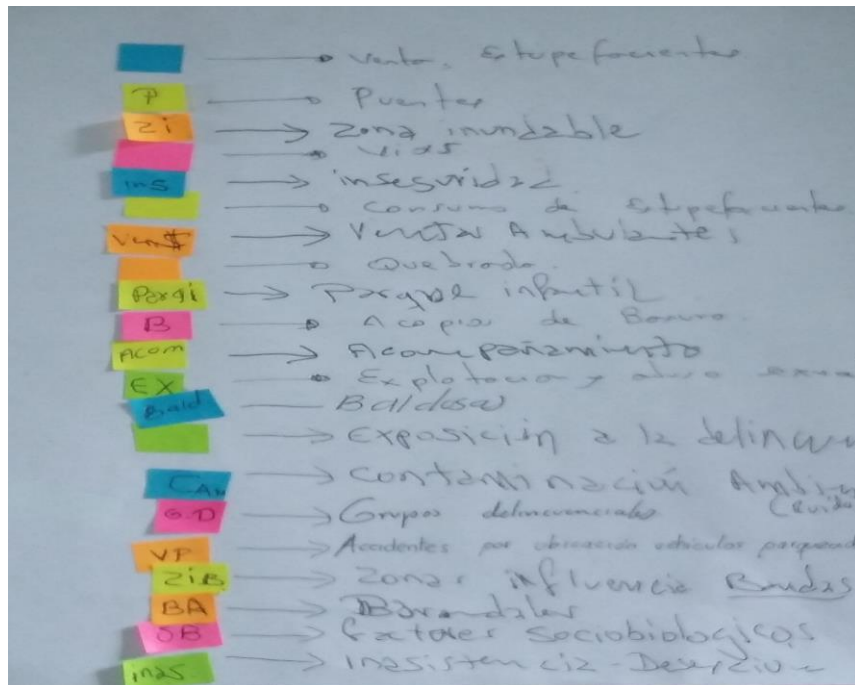 Venta. Estupefacientes
P Puentes
Zi Zona inundable
Vias
inS inseguridad
Consumo de Estupefacientes
Ven$ Ventas Ambulantes
Quebrada.
Parqi Parque infantil
B Acopio de Basura.
Acom Acompañamiento
EX Explotacion y abuso
Bald Baldosas
Exposición a la delincuen
CAm Contaminación Ambien
(Ruido
G.D Grupos delincuenciales
VP Accidentes por ubicación vehiculos parquead
ZiB Zonas influencia Bandas
BA Barandales
SB factores Sociobiologicos
inas inasistencia - Deserzion